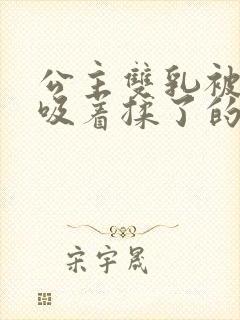 公主雙乳被
吸着揉了的
宋宇晟